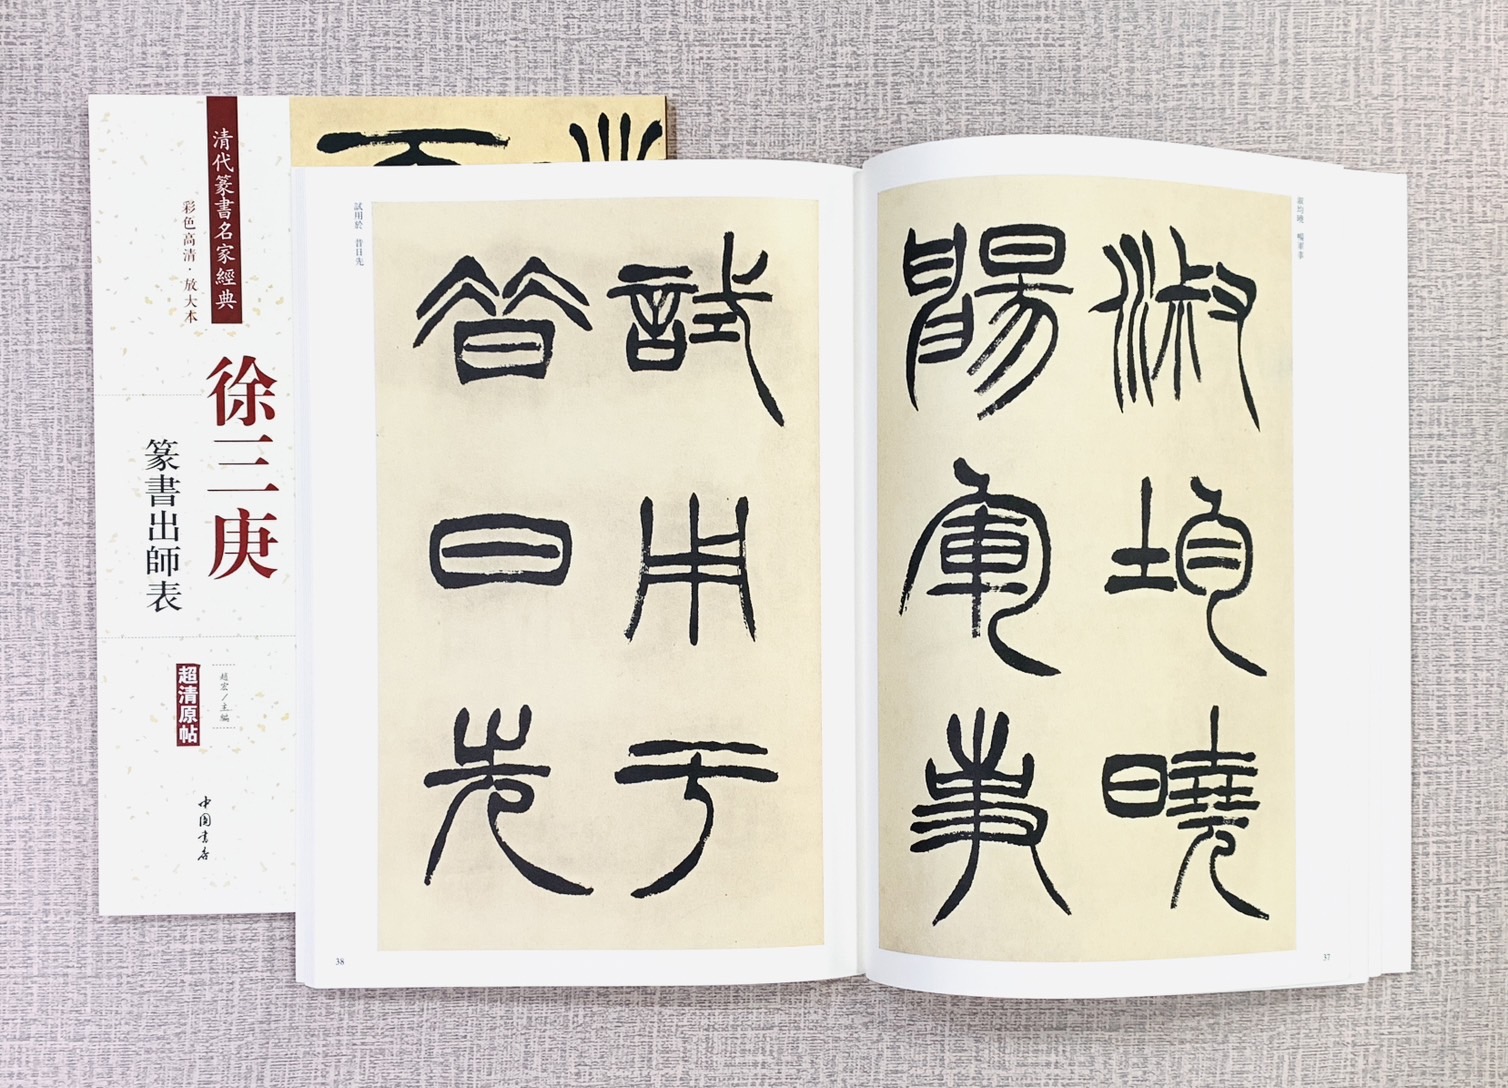 清代篆書名家經典
彩色高清·放大本
徐三庚
篆書出師表
趙宏/主編
超清原帖
中國書店
淑均曉 暢軍事
淑均曉
暢軍事
37
試用於 昔日先
試用于
昔日先
38